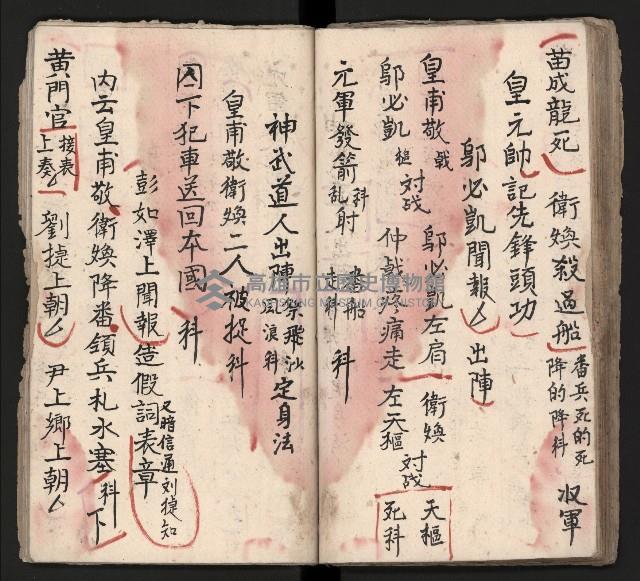 苗成龍死 衛煥殺過船 番兵死的死 降的降科 收軍
皇元帥記先鋒頭功
鄔必凱聞報 出陣
皇甫敬 戟 對战 鄔必凱左肩 衛煥 對战 天樞 死科
鄔必凱 槌 仲戟疼痛走 左天樞
元軍發箭亂射科 走科 科
神武道人出陣 祭飛沙 風浪科 定身法
皇甫敬衛煥二人被捉科
囚下犯車送回本國 科
彭如澤上聞報造假詞表章 又暗信通刘捷知
内云皇甫敬衛煥降番領兵札水塞 科 下
黃門官 接表上奏 劉捷上朝 尹上鄉上朝
高雄市立歷史博物館
KAOHSIUNG MUSEUM OF HISTORY